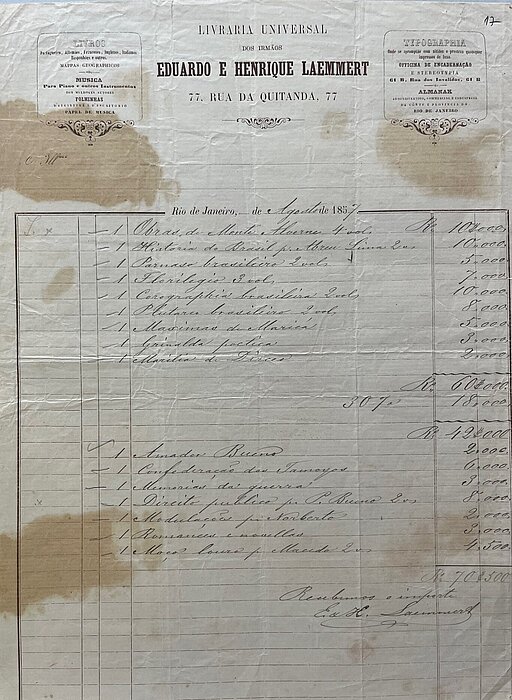 17
LIVRARIA UNIVERSAL
DOS IRMÃOS
EDUARDO E HENRIQUE LAEMMERT
77, RUA DA QUITANDA, 77
LIVROS
Portuguezes, Allemães, Francezes, Inglezes, Italianos
Hespanhóes e outros.
MAPPAS GEOGRAPHICOS
MUSICA
Para Piano e outros Instrumentos
DOS MELHORES AUTORES
FOLHINHAS
PAPEL DE MUSICA
TYPOGRAPHIA
OFFICINA DE ENCADERNAÇÃO
E STEREOTYPIA
61 B, Rua dos Invalidos, 61 B
ALMANAK
ADMINISTRATIVO, COMMERCIAL E INDUSTRIAL
DA CÔRTE E PROVINCIA DO
RIO DE JANEIRO
Rio de Janeiro, de Agosto de 1857
1 Obras de Monte Alverne 4 vol. Rs 10$000
1 Historia do Brasil p. Abreu Lima 2 vs 10.000
1 Parnaso brasileiro 2 vols 5.000
1 Florilegio 3 vols 7.000
1 Corographia brasileira 2 vols 10.000
1 Plutarco brasileiro 2 vol. 8.000
1 Maximas de Maricá 5.000
1 Grinalda poetica 3.000
1 Marilia de Dirceo 2.000
Rs 60$000
30 % 18.000
Rs 42$000
1 Amador Bueno 2.000
1 Confederação dos Tamoyos 6.000
1 Memorias da guerra 3.000
1 Direito publico p. P. Bueno 2 vs 8.000
1 Modulações p. Norberto 2.000
1 Romances e novellas 3.000
1 Moço louro p. Macedo 2 vs 4.500
Rs 70$500
Recebemos o importe
E. & H. Laemmert